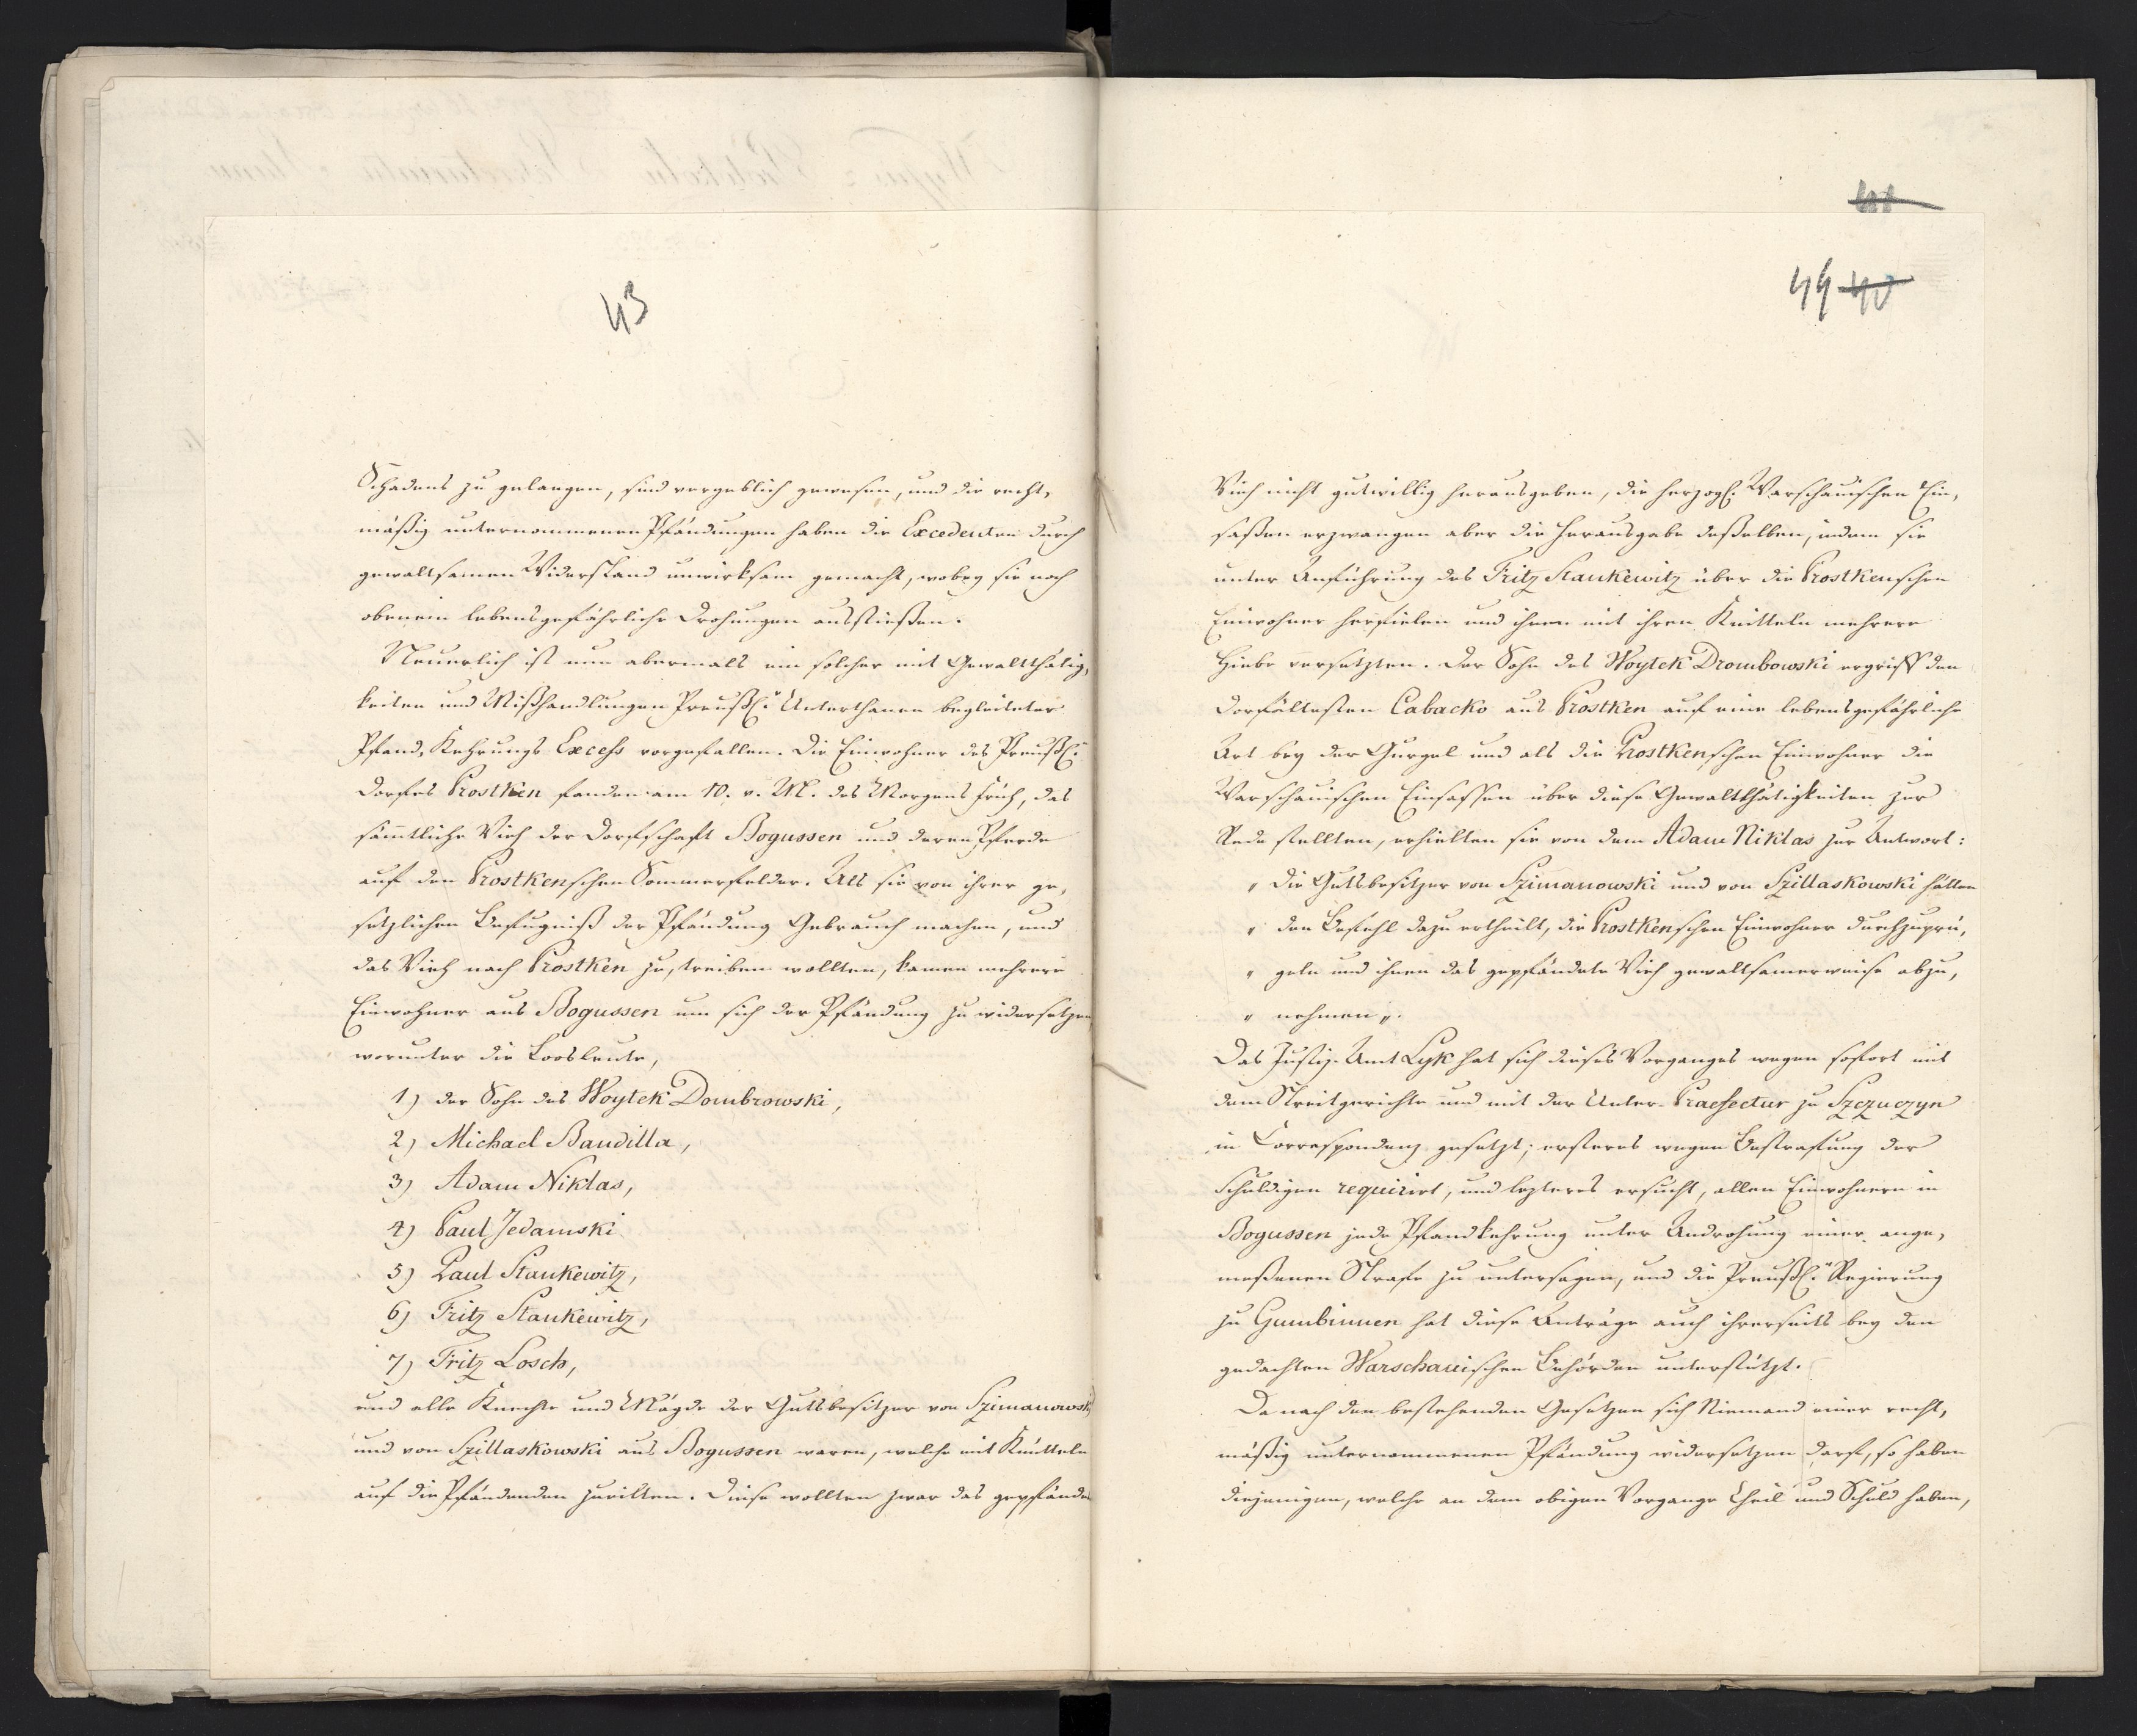 43
Schadens zu gelangen, sind vergeblich gewesen, und die recht,
mäßig unternommenen Pfändungen haben die Excedenten durch
gewaltsamen Widerstand unwirksam gemacht, wobey sie noch
obenein lebensgefährliche Drohungen ausstießen.
Neuerlich ist nun abermals ein solcher mit Gewaltthätig,
keiten und Mißhandlungen Preußl: Unterthanen begleiteter
Pfand, Kehrungs Excess vorgefallen. Die Einwohner des Preußl:
Dorfes Prostken fanden am 10. v. M. des Morgens früh, das
sämtliche Vieh der Dorfschaft Bogussen und deren Pferde
auf den Prostkenschen Sommerfelder. Als sie von ihrer ge,
setzlichen Befugniß der Pfändung Gebrauch machen, und
das Vieh nach Prostken zu, treiben wollten, kamen mehrere
Einwohner aus Bogussen um sich der Pfändung zu widersetzen
worunter die Loosleute,
1) der Sohn des Woytek Dombrowski,
2) Michael Bandilla,
3) Adam Niklas,
4) Paul Jedamski
5) Paul Stankewitz,
6) Fritz Stankewitz,
7) Fritz Losch,
und alle Knechte und Mägde der Gutsbesitzer von Szimanowski
und von Szillaskowski aus Bogussen waren, welche mit Knitteln
auf die Pfändenden zueilten. Diese wollten zwar das gepfände
41
44 40
Vieh nicht gutwillig herausgeben, die herzogl: Warschauischen Ein,
saßen erzwangen aber die Herausgabe deßelben, indem sie
unter Anführung des Fritz Stankewitz über die Prostkenschen
Einwohner herfielen und ihnen mit ihren Knitteln mehrere
Hiebe versetzten. Der Sohn des Woytek Drombowski ergriff den
Dorfältesten Cabacko aus Prostken auf eine lebensgefährliche
Art bey der Gurgel und als die Prostkenschen Einwohner die
Warschauischen Einsassen über diese Gewaltthätigkeiten zur
Rede stellten, erhielten sie von dem Adam Niklas zur Antwort:
" Die Gutsbesitzer von Szimanowski und von Szillaskowski hätten
" den Befehl dazu ertheilt, die Prostkenschen Einwohner durchzuprü,
" geln und ihnen das gepfändete Vieh gewaltsamerweise abzu,
" nehmen ".
Das Justiz-Amt Lyk hat sich dieses Vorganges wegen sofort mit
dem Streitgerichte und mit der Unter-Praefectur zu Szczuczyn
in Correspondenz gesetzt; ersteres wegen Bestrafung der
Schuldigen requirirt, und lezteres ersucht, allen Einwohnern in
Bogussen jede Pfandkehrung unter Androhung einer ange,
meßenen Strafe zu untersagen, und die Preußl: Regierung
zu Gumbinnen hat diese Anträge auch ihrerseits bey den
gedachten Warschauischen Behörden unterstützt.
Da nach den bestehenden Gesetzen sich Niemand einer recht,
mäßig unternommenen Pfändung widersetzen darf, so haben
diejenigen, welche an dem obigen Vorgange Theil und Schuld haben,